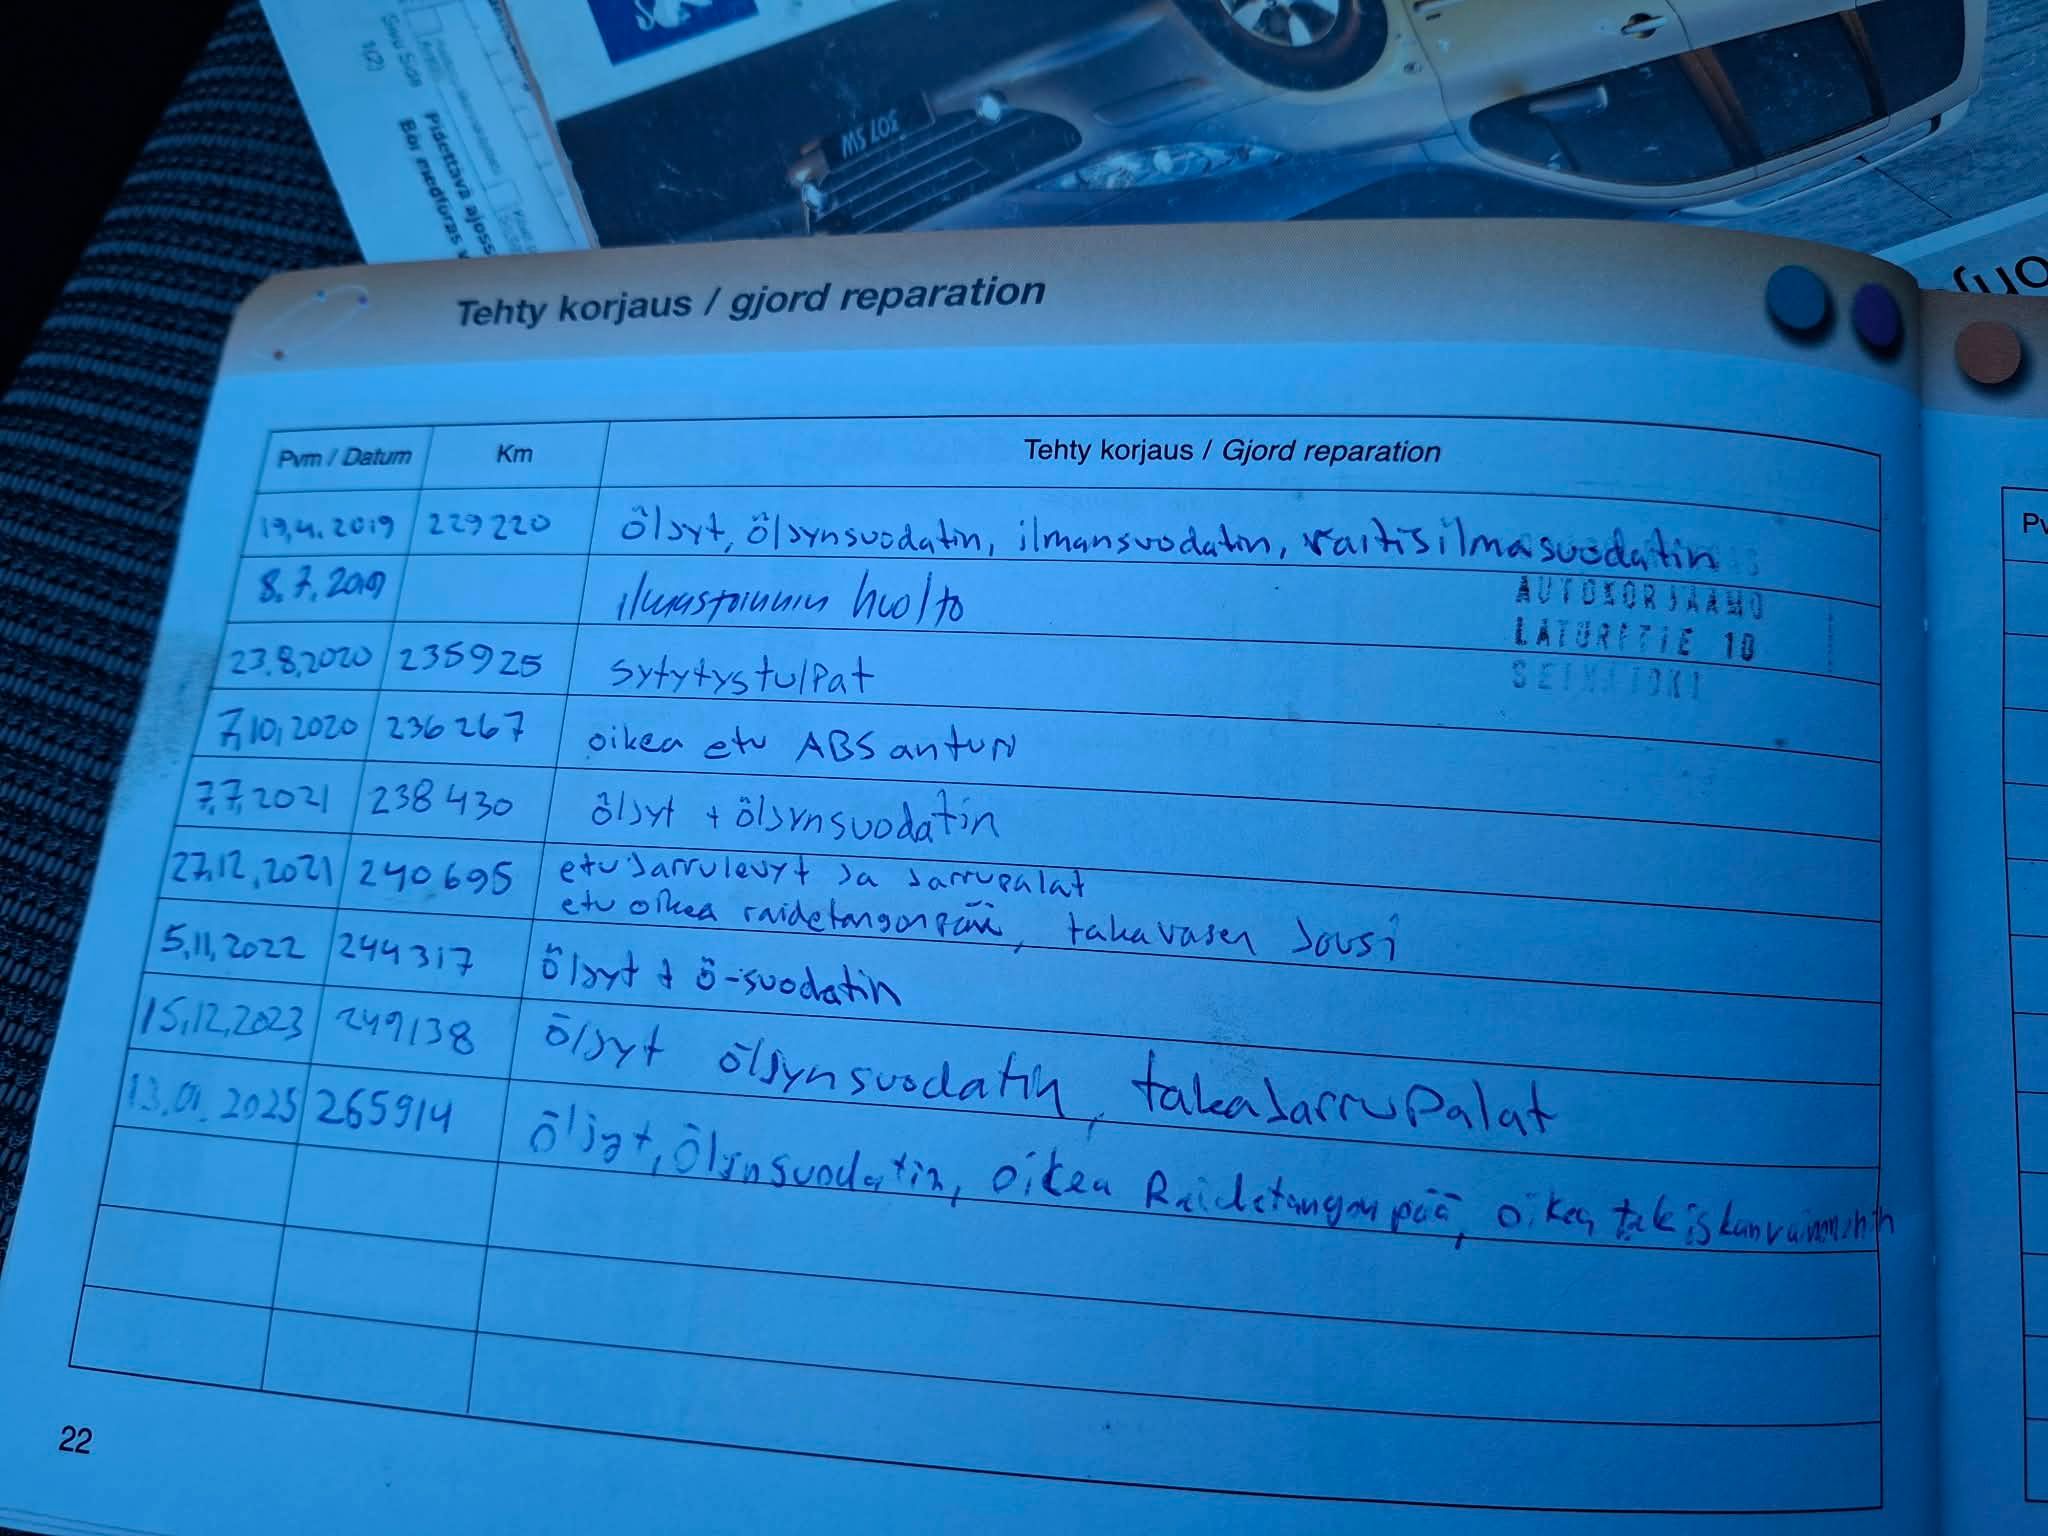 1(2)
Sivu Sida
Pidettävä ajoss
Bör medföras v
307 SW
Tehty korjaus / gjord reparation
Pvm / Datum Km Tehty korjaus / Gjord reparation
19.4.2019 229220 öljyt, öljynsuodatin, ilmansuodatin, raitisilmasuodatin
8.7.2019 ilmastoinnin huolto
AUTOKORJAAMO
LATURITIE 10
SEINÄJOKI
23.8.2020 235925 sytytystulpat
7.10.2020 236267 oikea etu ABS anturi
7.7.2021 238430 öljyt + öljynsuodatin
27.12.2021 240695 etu jarrulevyt ja jarrupalat
etu oikea raidetangonpää, takavasen jousi
5.11.2022 244317 öljyt + ö-suodatin
15.12.2023 249138 öljyt öljynsuodatin, takajarrupalat
13.01.2025 265914 öljyt, öljynsuodatin, oikea Raidetangon pää, oikea tak iskunvaimennin
22
Pv